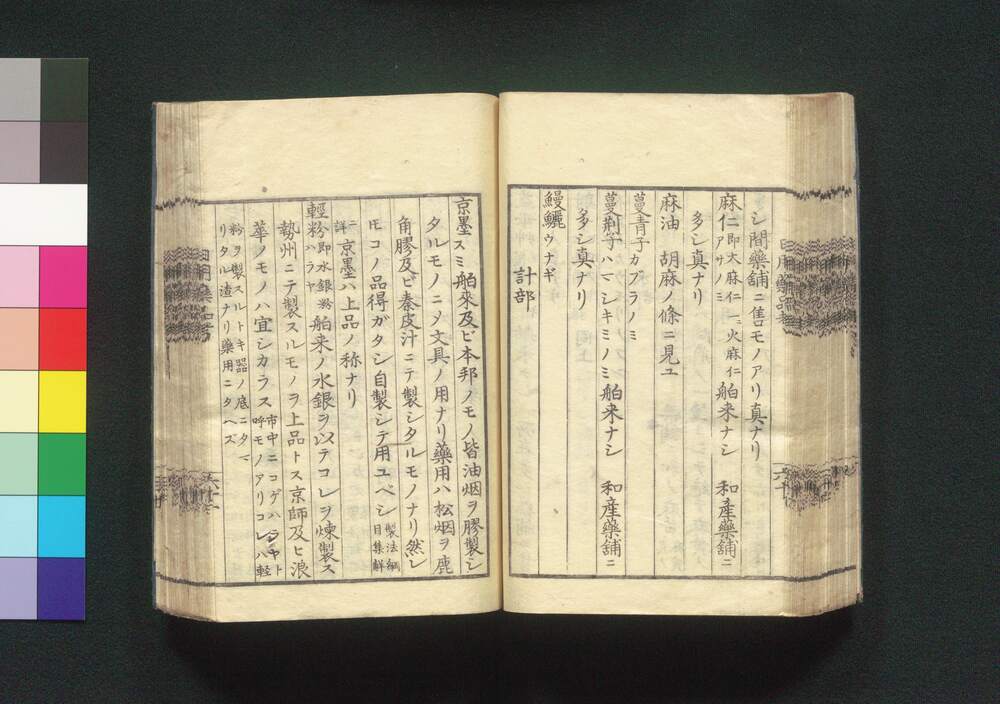 シ間藥舗ニ售モノアリ真ナリ
麻仁 即大麻仁一ニ火麻仁
アサノミ 舶来ナシ 和產藥舗ニ
多シ真ナリ
麻油 胡麻ノ條ニ見ユ
蔓青子カブラノミ
蔓荆子ハマシキミノミ舶来ナシ 和產藥舗ニ
多シ真ナリ
鰻鱺ウナギ
計部
京墨スミ舶來及ビ本邦ノモノ皆油烟ヲ膠製シ
タルモノニ〆文具ノ用ナリ藥用ハ松烟ヲ鹿
角膠及ビ秦皮汁ニテ製シタルモノナリ然レ
𪜈コノ品得ガタシ自製シテ用ユベシ 製法綱
目集觧
ニ詳 京墨ハ上品ノ称ナリ
輕粉 即水銀粉
ハラヤ 舶来ノ水銀ヲ以テコレヲ煉製ス
勢州ニテ製スルモノヲ上品トス京師及ヒ浪
華ノモノハ宜シカラス 市中ニコゲハラヤト
呼モノアリコレハ輕
粉ヲ製スルトキ器ノ底ニタマ
リタル渣ナリ藥用ニタヘズ
六十